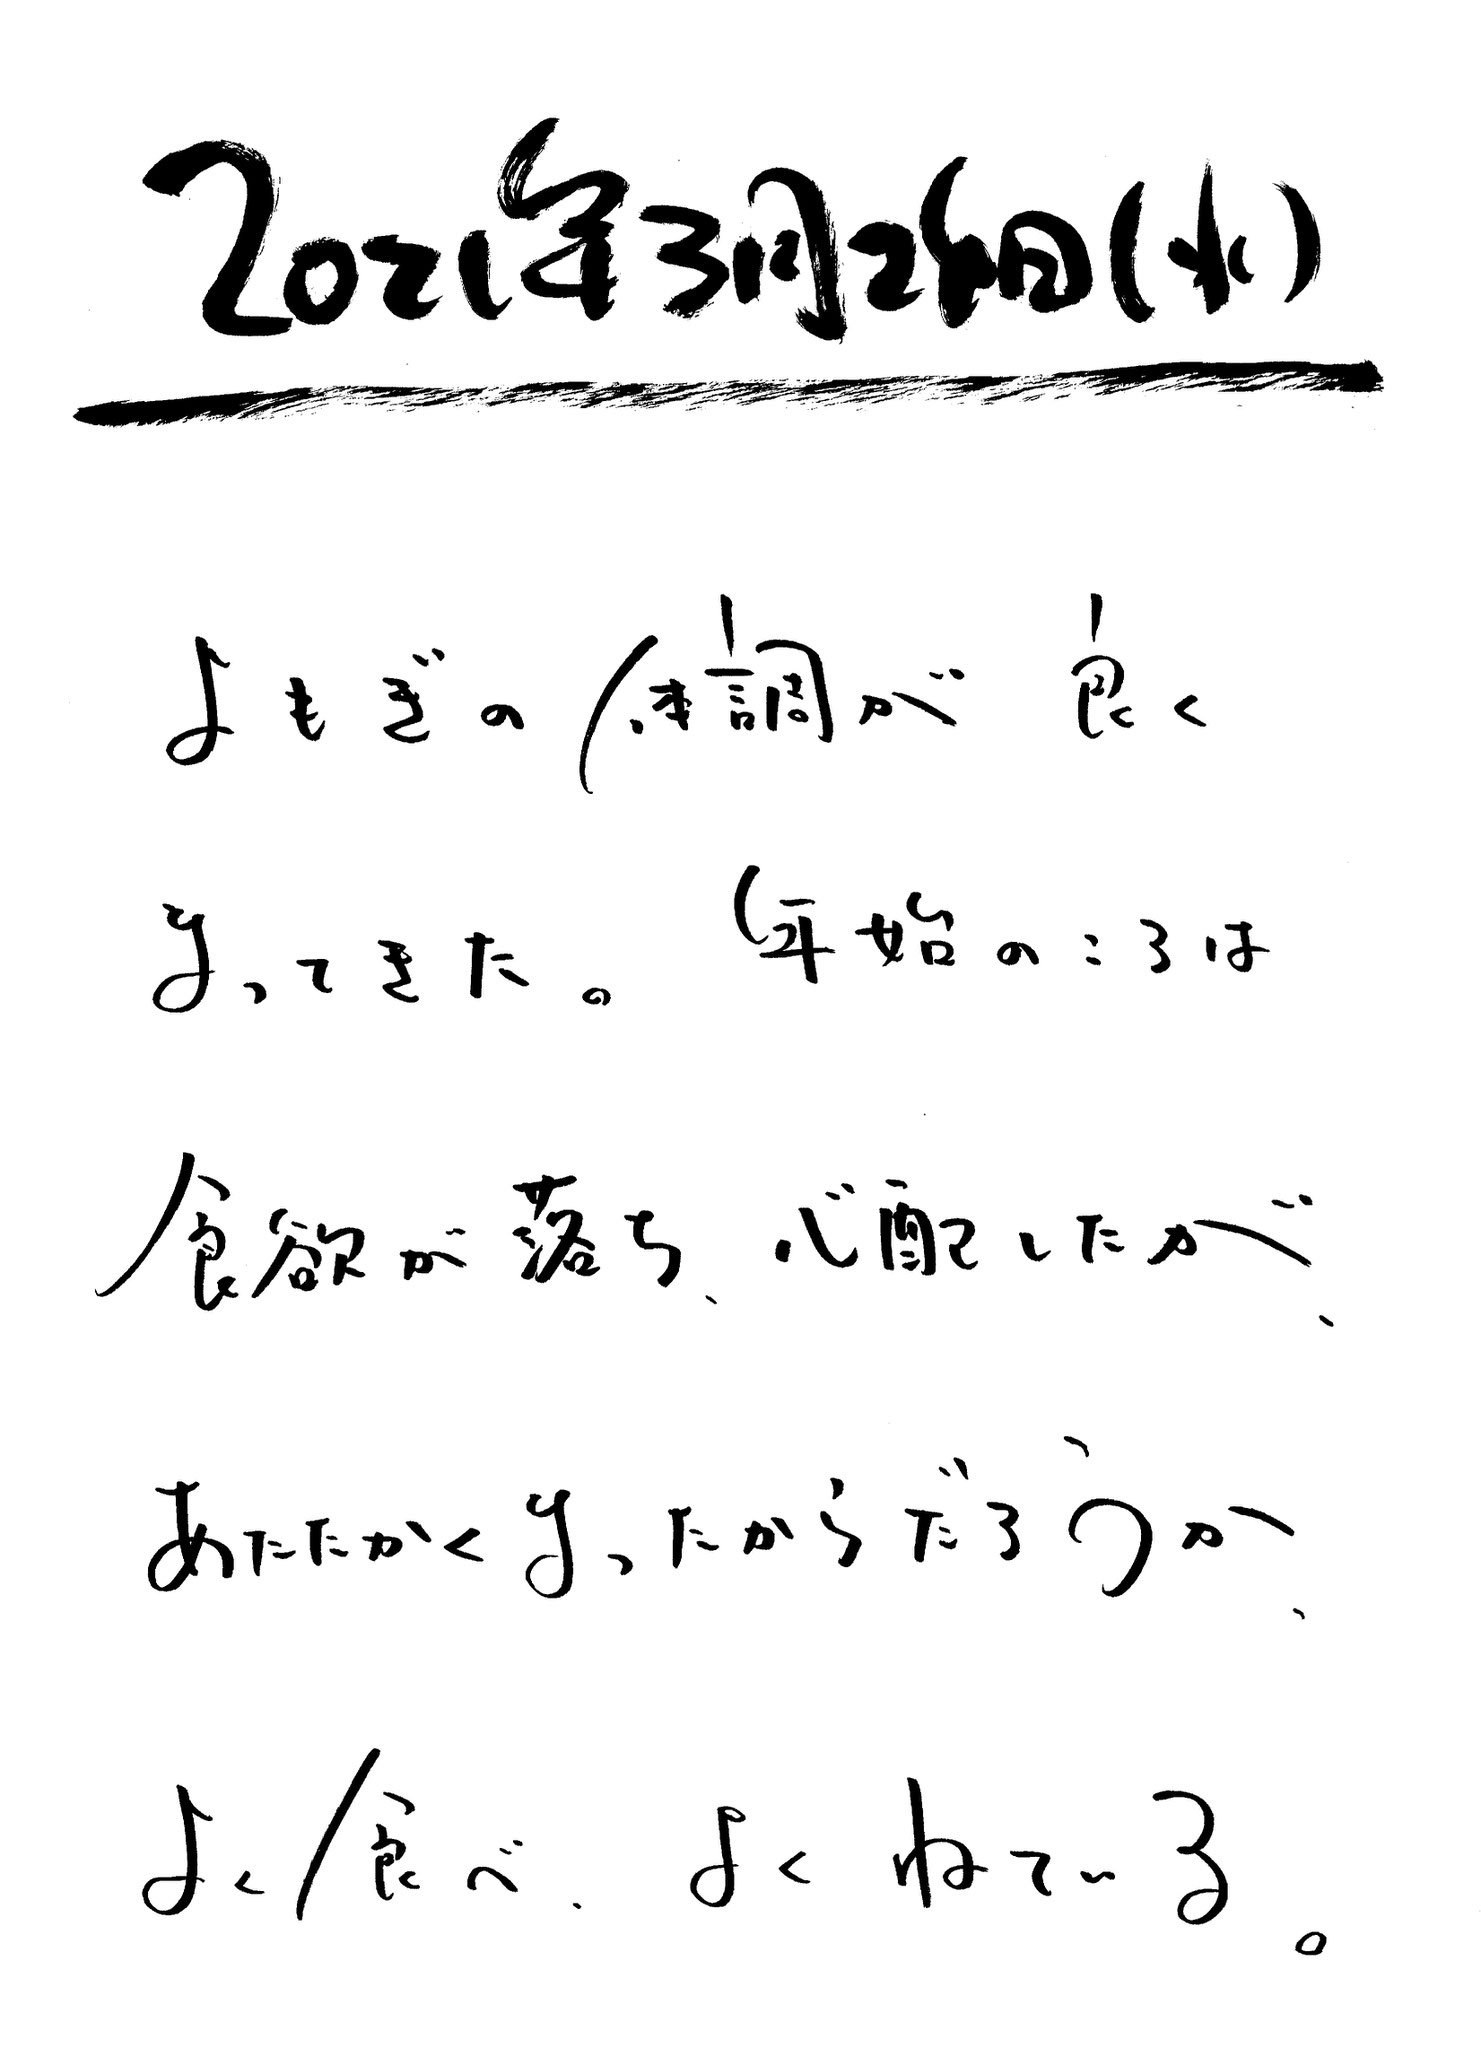 2021年3月24日(水)
よもぎの体調が良く
なってきた。年始のころは
食欲が落ち、心配したが、
あたたかくなったからだろうか、
よく食べ、よくねている。